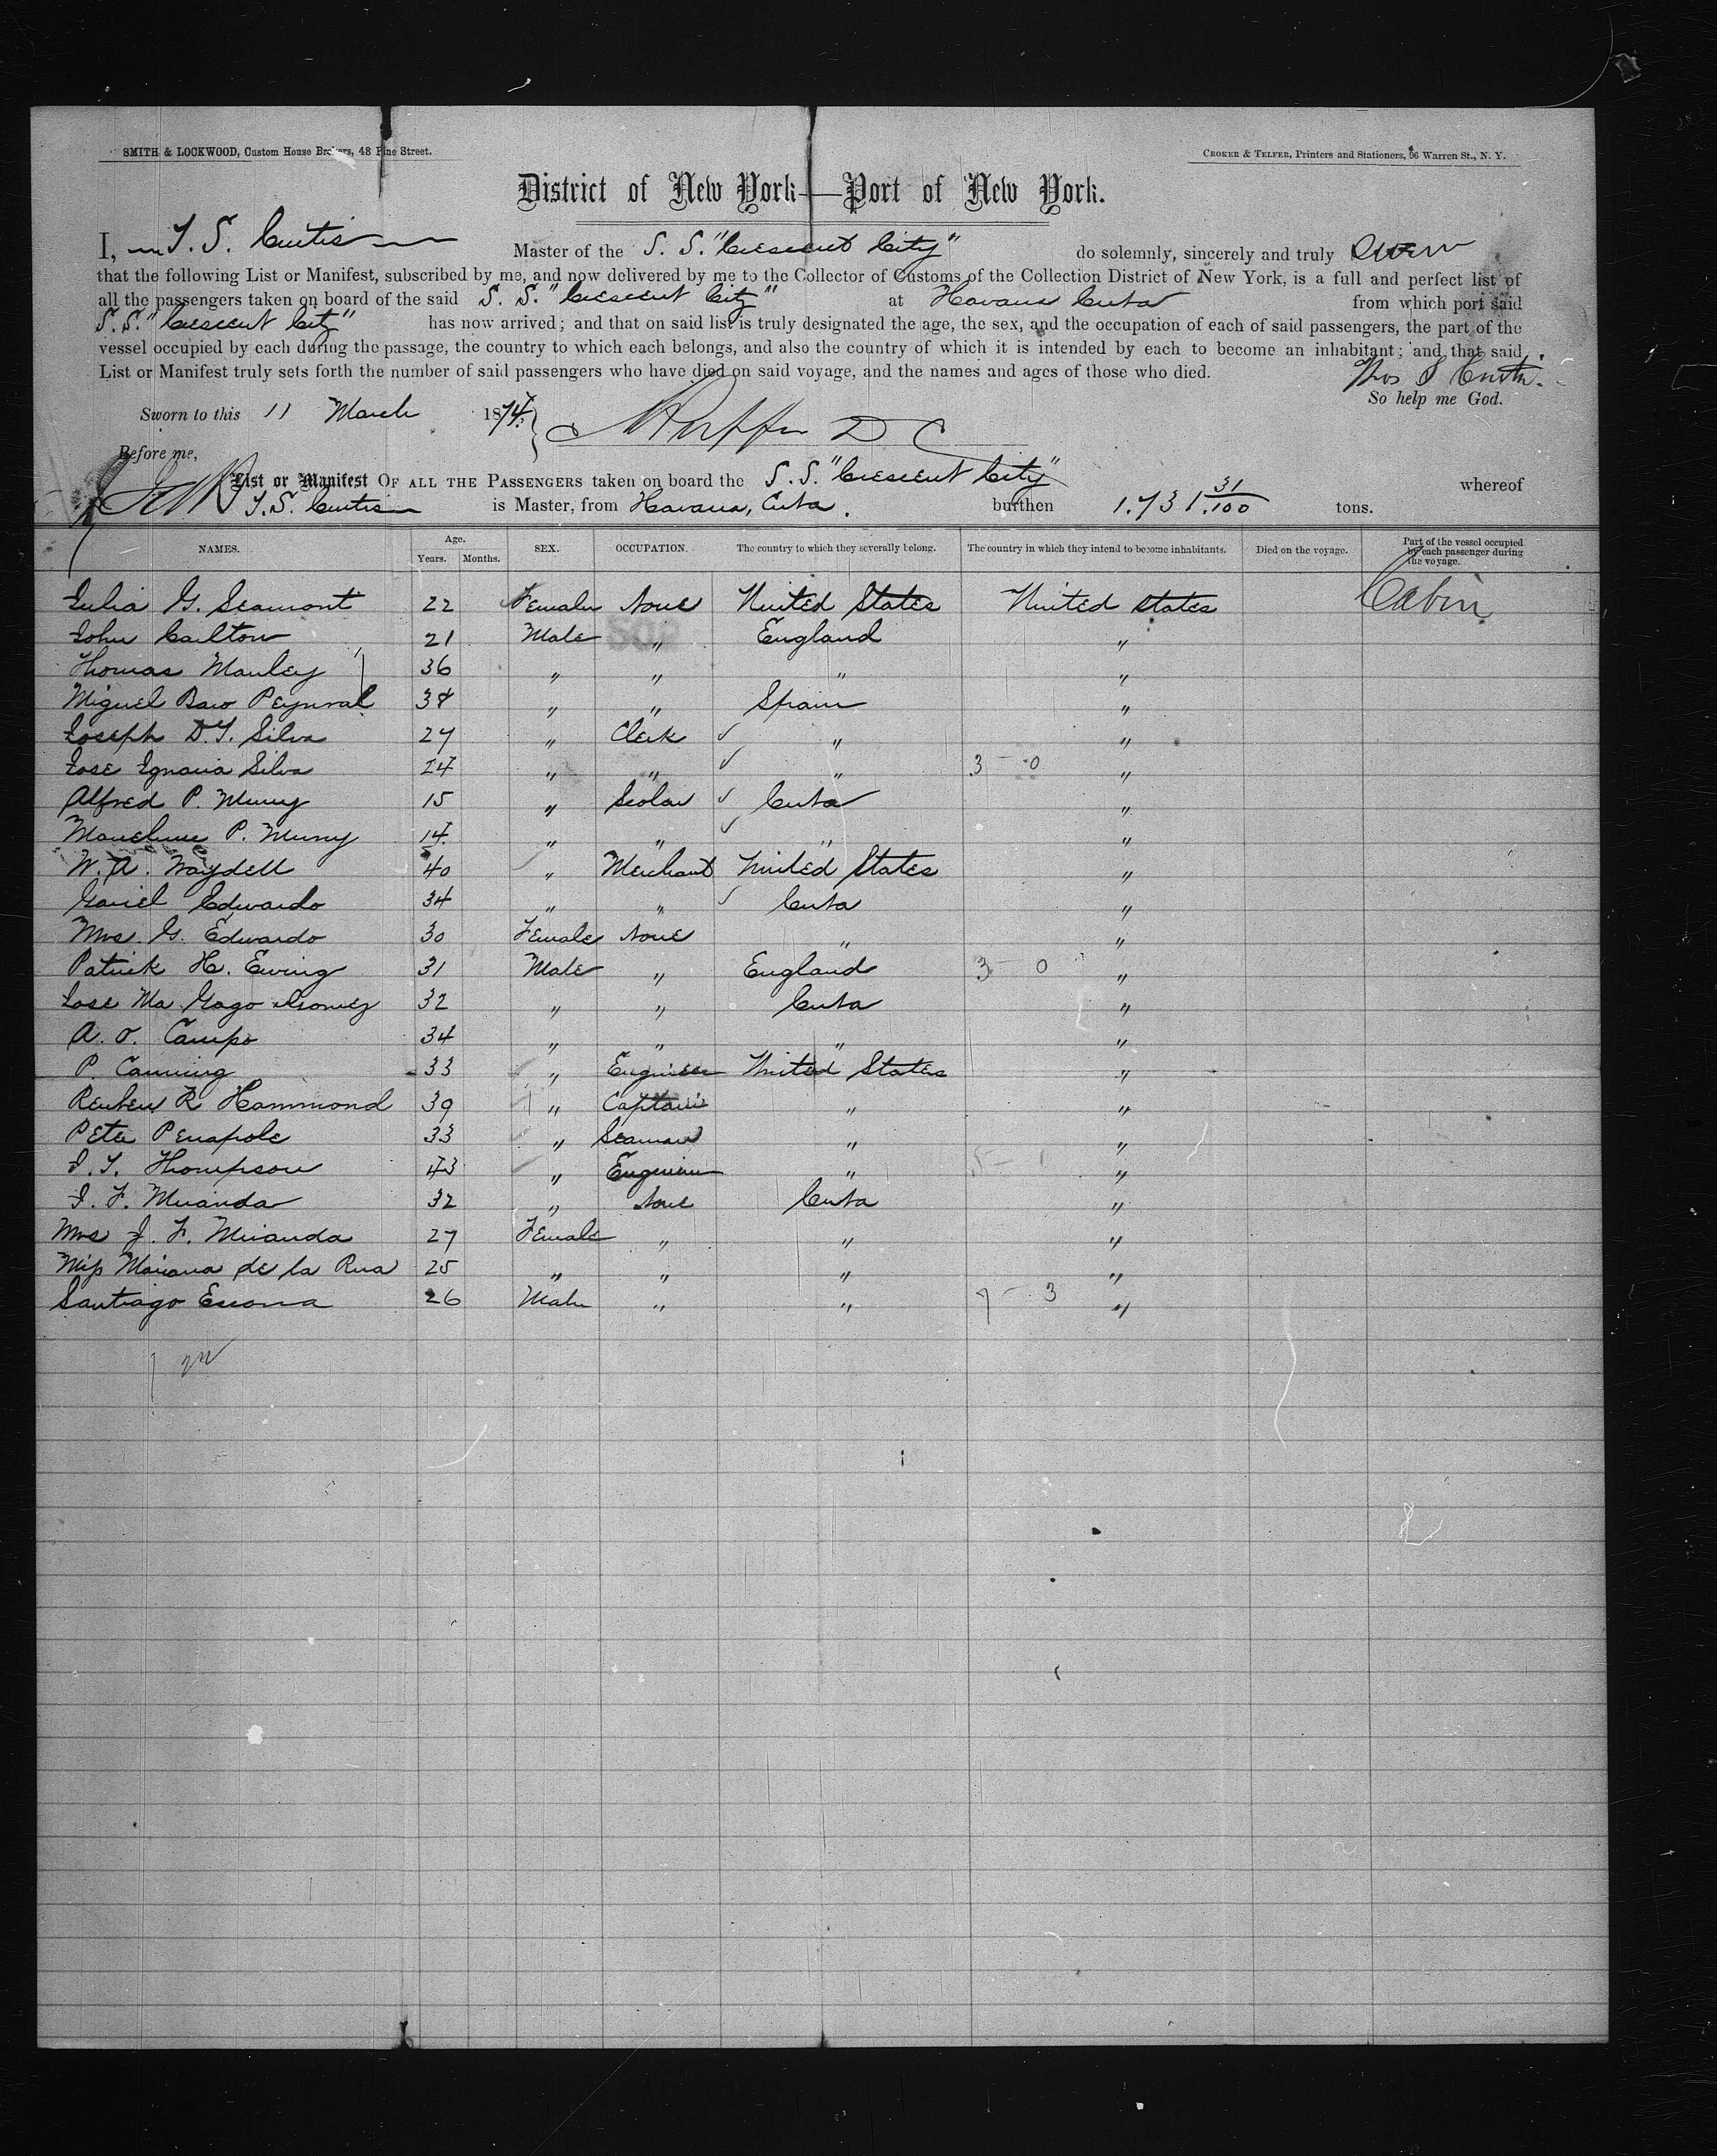 SMITH & LOCKWOOD, Custom House Brokers, 48 Pine Street.
CROKER & TELFER, Printers and Stationers, 96 Warren St., N. Y.
District of New York—Port of New York.
I, T. S. Curtis Master of the S. S. "Crescent City" do solemnly, sincerely and truly swear
that the following List or Manifest, subscribed by me, and now delivered by me to the Collector of Customs of the Collection District of New York, is a full and perfect list of
all the passengers taken on board of the said S. S. "Crescent City" at Havana Cuba from which port said
S. S. "Crescent City" has now arrived; and that on said list is truly designated the age, the sex, and the occupation of each of said passengers, the part of the
vessel occupied by each during the passage, the country to which each belongs, and also the country of which it is intended by each to become an inhabitant; and that said
List or Manifest truly sets forth the number of said passengers who have died on said voyage, and the names and ages of those who died. Thos S Curtis.
So help me God.
Sworn to this 11 March 1874. D C
Before me,
List or Manifest OF ALL THE PASSENGERS taken on board the S. S. "Crescent City" whereof
T. S. Curtis is Master, from Havana, Cuba. burthen 1.731.31/100 tons.
NAMES. Age. Years. Months. SEX. OCCUPATION. The country to which they severally belong. The country in which they intend to become inhabitants. Died on the voyage. Part of the vessel occupied by each passenger during the voyage.
Julia G. Seamont 22 Female None United States United States Cabin
John Carlton 21 Male " England "
Thomas Manley 36 " " " "
Miguel Baro 38 " " Spain "
Joseph D. T. Silva 27 " Clerk " "
Jose Ignacia Silva 24 " " " 3 - 0 "
Alfred P. 15 " Scolar Cuba "
P. 14 " " " "
W. A. Waydell 40 " Merchant United States "
Gariel Edwardo 34 " " Cuba "
Mrs. G. Edwardo 30 Female None " "
Patrick H. Ewing 31 Male " England 3 - 0 "
Jose Ma Gago Gomez 32 " " Cuba "
A. O. Campo 34 " " " "
P Canning 33 " Engineer United States "
Reuben R Hammond 39 " Captain " "
Peter Penapole 33 " Seaman " "
J. T. Thompson 43 " Engineer " 5 - 1 "
J. F. Miranda 32 " None Cuba "
Mrs J. F. Miranda 27 Female " " "
Miss Mariana de la Rua 25 " " " "
Santiago 26 Male " " 7 - 3 "